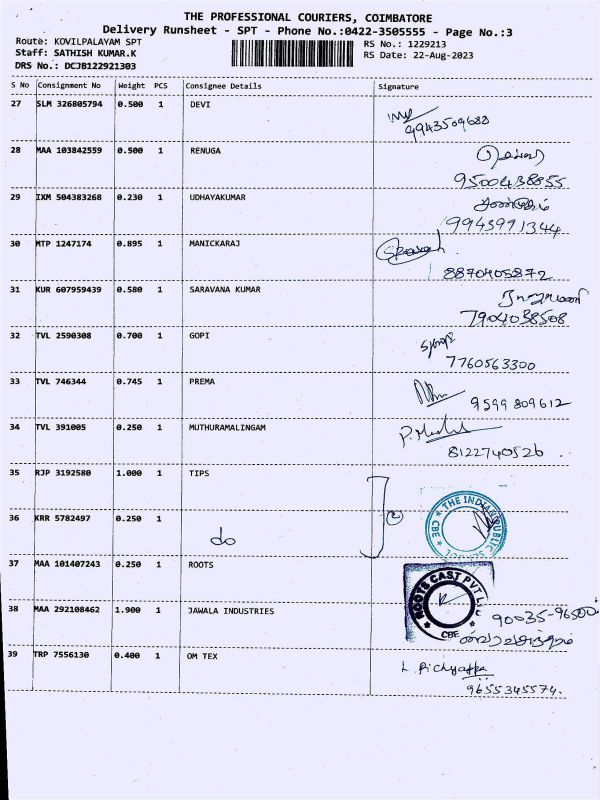 THE PROFESSIONAL COURIERS, COIMBATORE
Delivery Runsheet - SPT - Phone No.:0422-3505555 - Page No.:3
Route: KOVILPALAYAM SPT
Staff: SATHISH KUMAR.K
DRS No.: DCJB122921303
RS No.: 1229213
RS Date: 22-Aug-2023
S No Consignment No Weight PCS Consignee Details Signature
27 SLM 326805794 0.500 1 DEVI
9943509688
28 MAA 103842559 0.500 1 RENUGA
9500438855
29 IXM 504383268 0.230 1 UDHAYAKUMAR
9943991344
30 MTP 1247174 0.895 1 MANICKARAJ
8870405872
31 KUR 607959439 0.580 1 SARAVANA KUMAR
7904038508
32 TVL 2590308 0.700 1 GOPI
7760563300
33 TVL 746344 0.745 1 PREMA
9599809612
34 TVL 391005 0.250 1 MUTHURAMALINGAM
8122740526
35 RJP 3192580 1.000 1 TIPS
36 KRR 5782497 0.250 1 do
2
THE INDIAN PUBLIC SCHOOL
CBE
37 MAA 101407243 0.250 1 ROOTS
ROOTS CAST PVT
CBE
38 MAA 292108462 1.900 1 JAWALA INDUSTRIES
39 TRP 7556130 0.400 1 OM TEX
L. Pichyappa
9655345574.